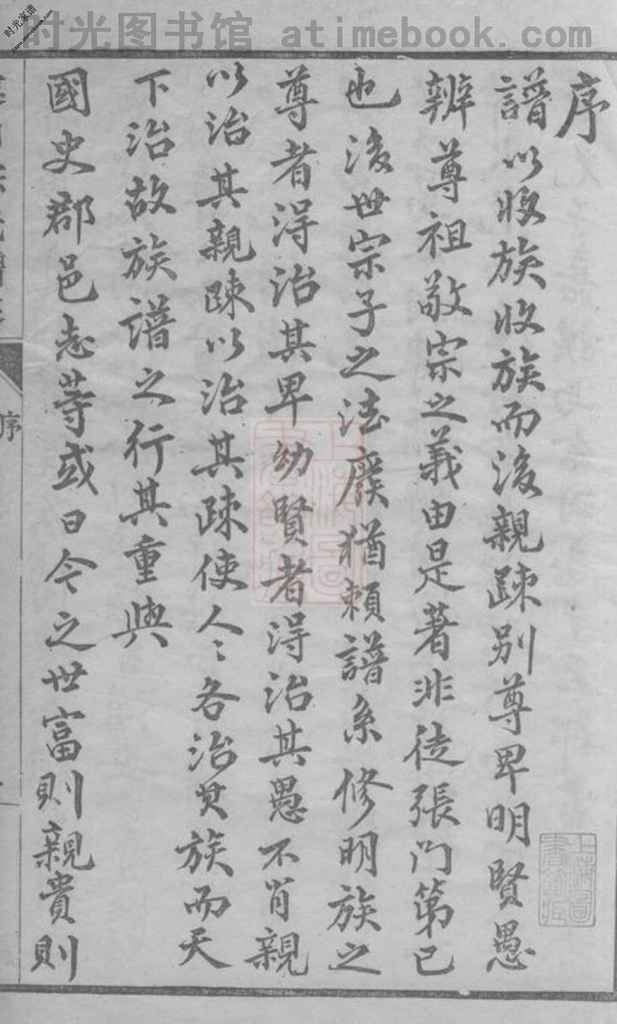 时光图书馆 atimebook.com
时光家谱
序
譜以收族收族而後親踈别尊卑明賢愚
辨尊祖敬宗之義由是著非徒張門第已
也後世宗子之法廢猶賴譜系修明族之
尊者得治其卑幼賢者得治其愚不肖親
以治其親踈以治其踈使人々各治其族而天
下治故族譜之行其重與
國史郡邑志等或曰今之世富則親貴則
序